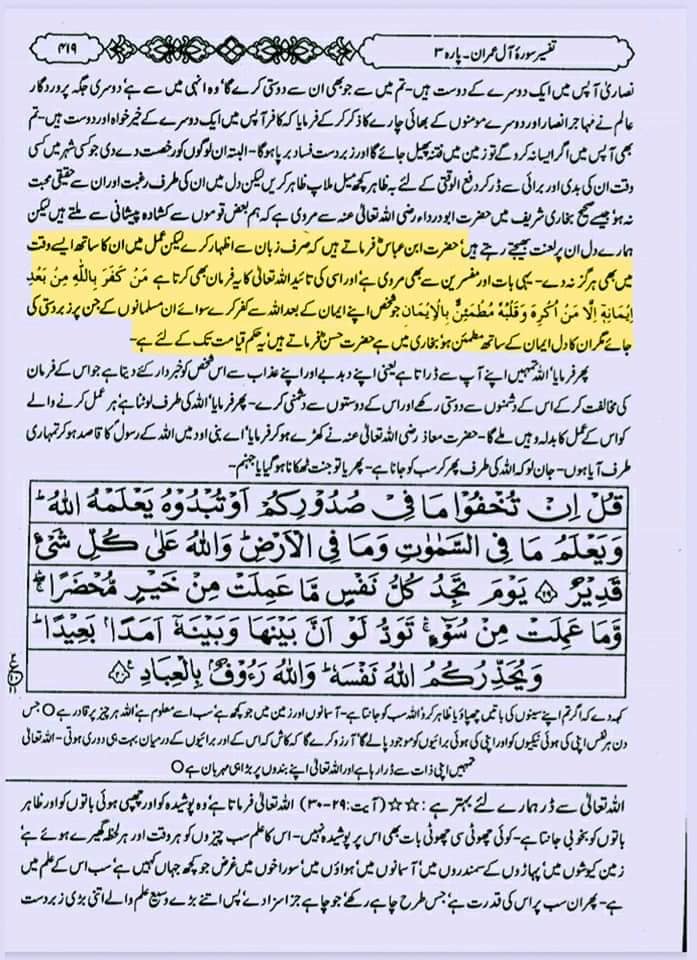 تفسیر سورۂ آل عمران۔ پارہ ۳
۴۱۹
نصاریٰ آپس میں ایک دوسرے کے دوست ہیں۔ تم میں سے جو بھی ان سے دوستی کرے گا' وہ انہی میں سے ہے' دوسری جگہ پروردگار
عالم نے مہاجر انصار اور دوسرے مومنوں کے بھائی چارے کا ذکر کر کے فرمایا کہ کافر آپس میں ایک دوسرے کے خیر خواہ اور دوست ہیں۔ تم
بھی آپس میں اگر ایسا نہ کرو گے تو زمین میں فتنہ پھیل جائے گا اور زبردست فساد برپا ہوگا۔ البتہ ان لوگوں کو رخصت دے دی جو کسی شہر میں کسی
وقت ان کی بدی اور برائی سے ڈر کر دفع الوقتی کے لئے بہ ظاہر کچھ میل ملاپ ظاہر کریں لیکن دل میں ان کی طرف رغبت اور ان سے حقیقی محبت
نہ ہو' جیسے صحیح بخاری شریف میں حضرت ابودرداء رضی اللہ تعالیٰ عنہ سے مروی ہے کہ ہم بعض قوموں سے کشادہ پیشانی سے ملتے ہیں لیکن
ہمارے دل ان پر لعنت بھیجتے رہتے ہیں' حضرت ابن عباسؓ فرماتے ہیں کہ صرف زبان سے اظہار کرے لیکن عمل میں ان کا ساتھ ایسے وقت
میں بھی ہرگز نہ دے۔ یہی بات اور مفسرین سے بھی مروی ہے' اور اسی کی تائید اللہ تعالیٰ کا یہ فرمان بھی کرتا ہے مَنْ کَفَرَ بِاللّٰهِ مِنْ بَعْدِ
اِیْمَانِهٖ اِلَّا مَنْ اُکْرِهَ وَقَلْبُهٗ مُطْمَئِنٌّ بِالْاِیْمَانِ جو شخص اپنے ایمان کے بعد اللہ سے کفر کرے سوائے ان مسلمانوں کے جن پر زبردستی کی
جائے مگر ان کا دل ایمان کے ساتھ مطمئن ہو' بخاری میں ہے حضرت حسنؒ فرماتے ہیں' یہ حکم قیامت تک کے لئے ہے۔
پھر فرمایا' اللہ تمہیں اپنے آپ سے ڈراتا ہے یعنی اپنے دبدبے اور اپنے عذاب سے اس شخص کو خبردار کئے دیتا ہے جو اس کے فرمان
کی مخالفت کر کے اس کے دشمنوں سے دوستی رکھے اور اس کے دوستوں سے دشمنی کرے۔ پھر فرمایا' اللہ کی طرف لوٹنا ہے' ہر عمل کرنے والے
کو اس کے عمل کا بدلہ وہیں ملے گا۔ حضرت معاذ رضی اللہ تعالیٰ عنہ نے کھڑے ہو کر فرمایا' اے بنی اود میں اللہ کے رسولؐ کا قاصد ہو کر تمہاری
طرف آیا ہوں۔ جان لو کہ اللہ کی طرف پھر کر سب کو جانا ہے۔ پھر یا تو جنت ٹھکانا ہوگا یا جہنم۔
قُلْ اِنْ تُخْفُوْا مَا فِیْ صُدُوْرِکُمْ اَوْ تُبْدُوْهُ یَعْلَمْهُ اللّٰهُ ؕ
وَیَعْلَمُ مَا فِی السَّمٰوٰتِ وَمَا فِی الْاَرْضِ ؕ وَاللّٰهُ عَلٰی کُلِّ شَیْءٍ
قَدِیْرٌ ۝۲۹ یَوْمَ تَجِدُ کُلُّ نَفْسٍ مَّا عَمِلَتْ مِنْ خَیْرٍ مُّحْضَرًا ۚۛ
وَّمَا عَمِلَتْ مِنْ سُوْٓءٍ ۚۛ تَوَدُّ لَوْ اَنَّ بَیْنَهَا وَبَیْنَهٗٓ اَمَدًۢا بَعِیْدًا ؕ
وَیُحَذِّرُکُمُ اللّٰهُ نَفْسَهٗ ؕ وَاللّٰهُ رَءُوْفٌۢ بِالْعِبَادِ ۝۳۰
کہہ دے کہ اگر تم اپنے سینوں کی باتیں چھپاؤ یا ظاہر کرو' اللہ سب کو جانتا ہے۔ آسمانوں اور زمین میں جو کچھ ہے' سب اسے معلوم ہے' اللہ ہر چیز پر قادر ہے ○ جس
دن ہر نفس اپنی کی ہوئی نیکیوں کو اور اپنی کی ہوئی برائیوں کو موجود پالے گا' آرزو کرے گا کہ کاش کہ اس کے اور برائیوں کے درمیان بہت ہی دوری ہوتی۔ اللہ تعالیٰ
تمہیں اپنی ذات سے ڈرا رہا ہے اور اللہ تعالیٰ اپنے بندوں پر بڑا ہی مہربان ہے ○
اللہ تعالیٰ سے ڈر ہمارے لئے بہتر ہے : ☆☆ (آیت:۲۹-۳۰) اللہ تعالیٰ فرماتا ہے' وہ پوشیدہ کو اور چھپی ہوئی باتوں کو اور ظاہر
باتوں کو بخوبی جانتا ہے۔ کوئی چھوٹی سی چھوٹی بات بھی اس پر پوشیدہ نہیں۔ اس کا علم سب چیزوں کو ہر وقت اور ہر لحظہ گھیرے ہوئے ہے'
زمین کے گوشوں میں' پہاڑوں کے سمندروں میں' آسمانوں میں' ہواؤں میں' سوراخوں میں' غرض جو کچھ جہاں کہیں ہے' سب اس کے علم میں
ہے۔ پھر ان سب پر اس کی قدرت ہے' جس طرح چاہے رکھے' جو چاہے جزا سزا دے' پس اتنے بڑے وسیع علم والے اتنی بڑی زبردست